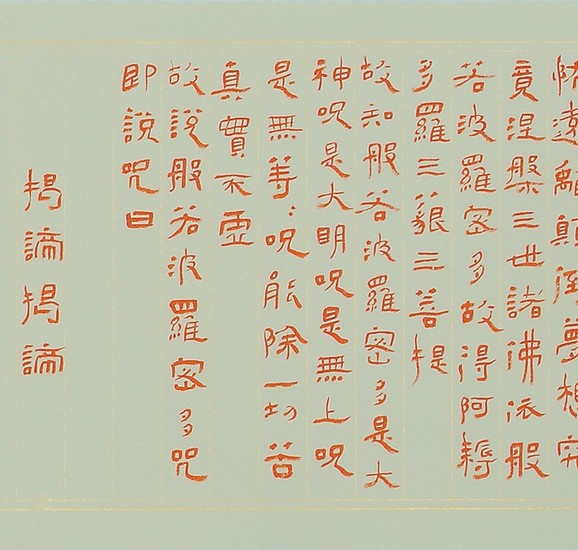 怖遠離顛倒夢想究
竟涅槃三世諸佛依般
若波羅密多故得阿耨
多羅三藐三菩提
故知般若波羅密多是大
神呪是大明呪是無上呪
是無等〻呪能除一切苦
真實不虛
故說般若波羅密多呪
即說呪曰
揭諦揭諦